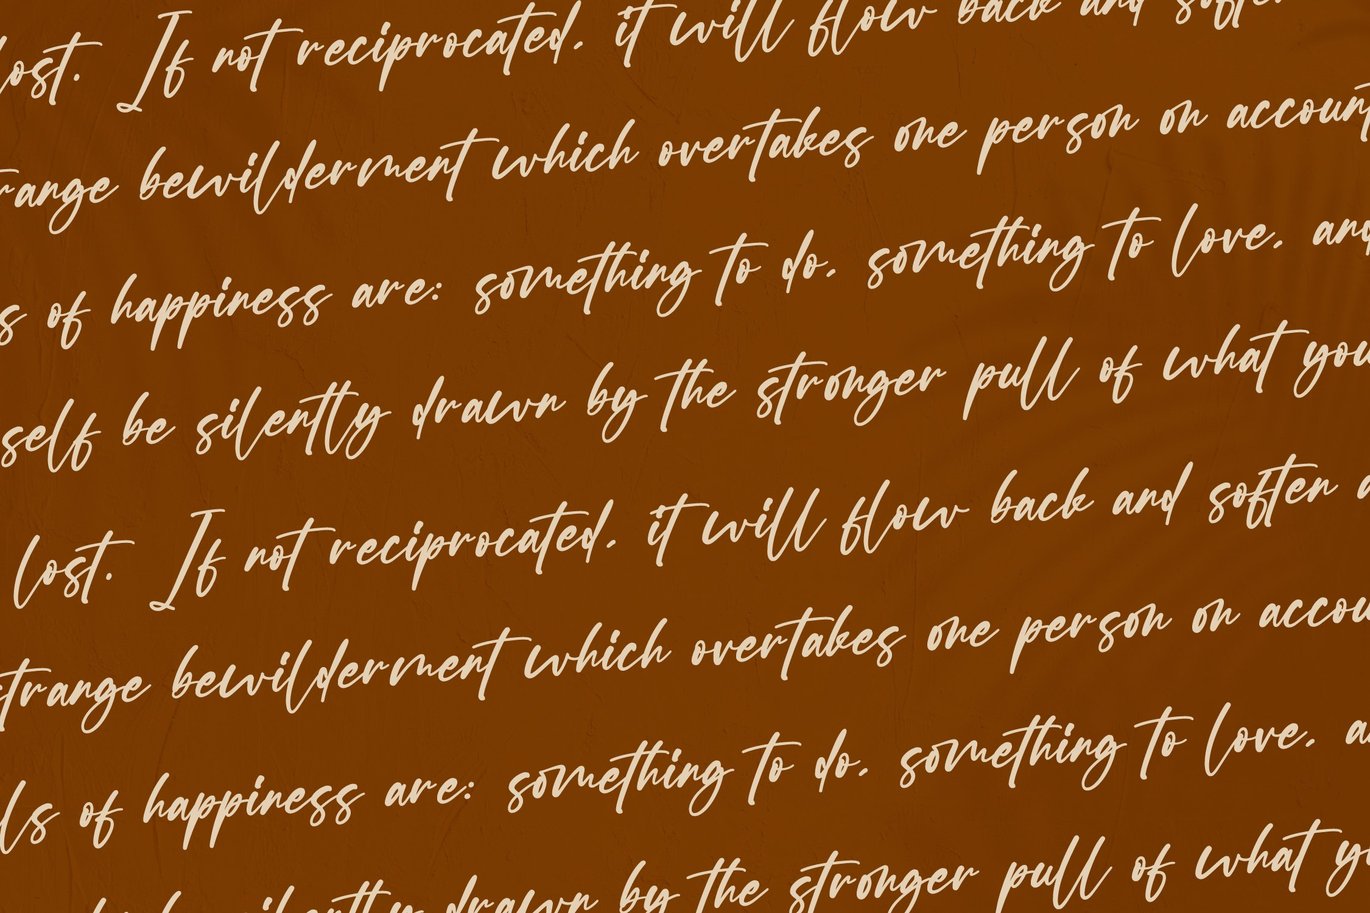 lost. If not reciprocated, it will flow back and soften
strange bewilderment which overtakes one person on account
s of happiness are: something to do, something to love, and
self be silently drawn by the stronger pull of what you
lost. If not reciprocated, it will flow back and soften a
strange bewilderment which overtakes one person on accou
ls of happiness are: something to do, something to love, a
be silently drawn by the stronger pull of what yo